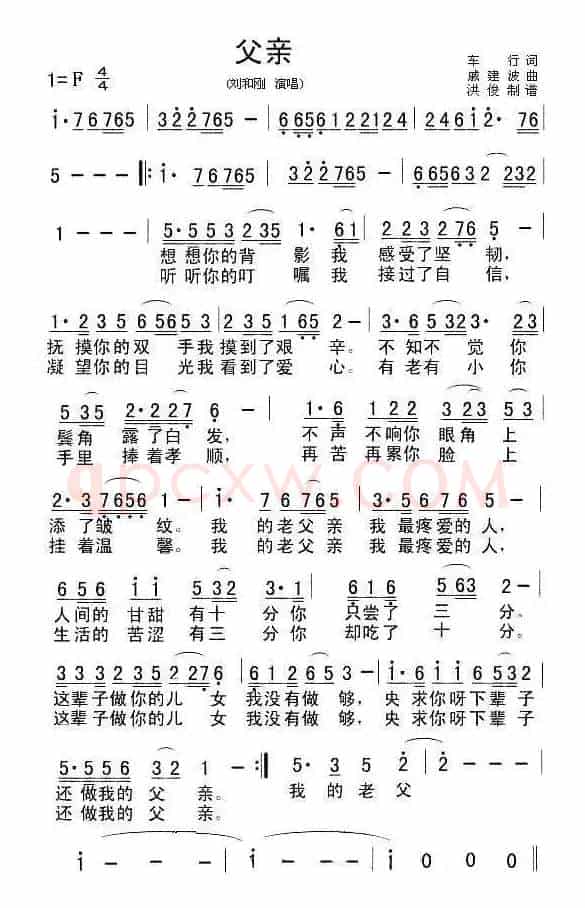 父亲
(刘和刚 演唱)
车 行词
戚建波曲
洪俊制谱
1=F 4/4
i· 76765 | 322765 - | 6656121124 | 2461̇2̇· 76
5 - - ‖: i· 76765 | 322765 - | 66561̇2 2232
1 - - | 5·553 235 1· 61 | 2232765 -
想想你的背影我 感受了坚韧,
听听你的叮嘱我 接过了自信,
1·235 65653 | 235165 2- | 3·65323· 23
抚摸你的双手我摸到了艰辛。不知不觉你
凝望你的目光我看到了爱心。有老有小你
535 2·227 6- | 1·6 122 323 53
鬓角露了白发, 不声不响你眼角上
手里捧着孝顺, 再苦再累你脸上
2·37656 - | i· 76765 | 3·5676 -
添了皱纹。我的老父亲我最疼爱的人,
挂着温馨。我的老父亲我最疼爱的人,
656 ii 532 3·1 | 616 563 2-
人间的甘甜有十分你只尝了三分。
生活的苦涩有三分你却吃了十分。
3323235 2276 | 612653 - | i·6ii 6532
这辈子做你的儿女我没有做够,央求你呀下辈子
这辈子做你的儿女我没有做够,央求你呀下辈子
5·556 32 1- :‖ 5· 35 2̇ | 2̇ - - -
还做我的父亲。 我的老父
还做我的父亲。
i - - - | i - - - | i 0 0 0 ‖
qpcxw.COM